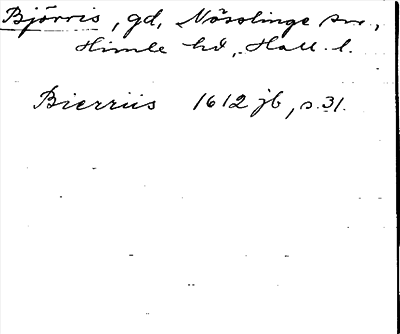 Björris, gd, Nösslinge sn.,
Himle hd, Hall. l.
Bierriis 1612 jb, s. 31.